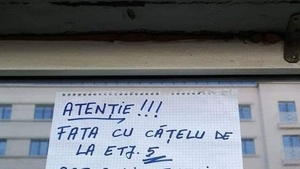 ATENȚIE !!!
FATA CU CĂȚELU DE
LA ETJ. 5